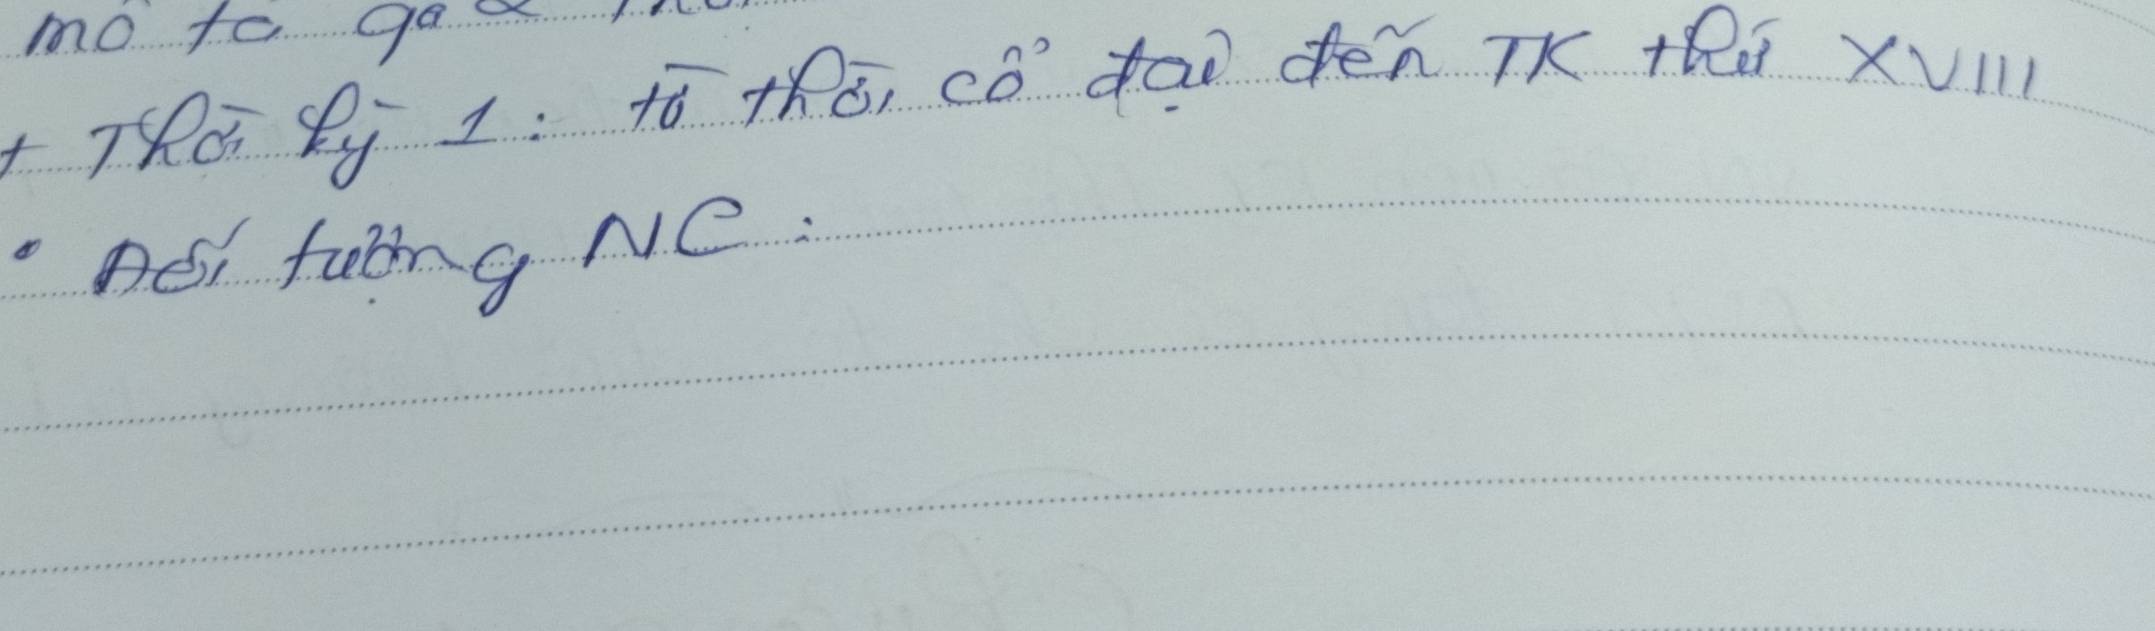 mô tả qa 2
+ Thời kỳ 1: từ thời cổ đại đến TK thứ XVIII
• Đối tượng NC: